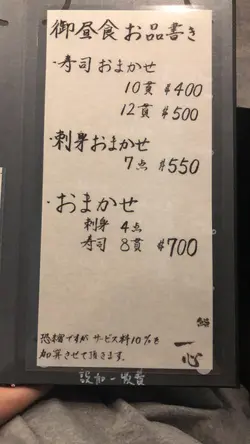 御昼食お品書き
・寿司おまかせ
10貫 $400
12貫 $500
・刺身おまかせ
7点 $550
・おまかせ
刺身 4点
寿司 8貫 $700
恐縮ですが サービス料10%を
加算させて頂きます。
一心
設加一收費